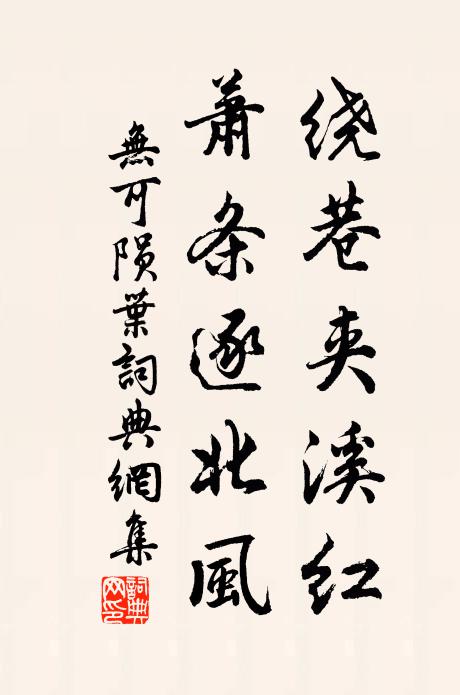 绕巷夹溪红
萧条逐北風
無可陨葉詞典網集
詞典网印